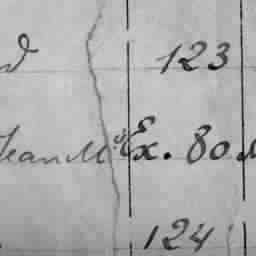 d 123
Jean Mc Ex. 80
124